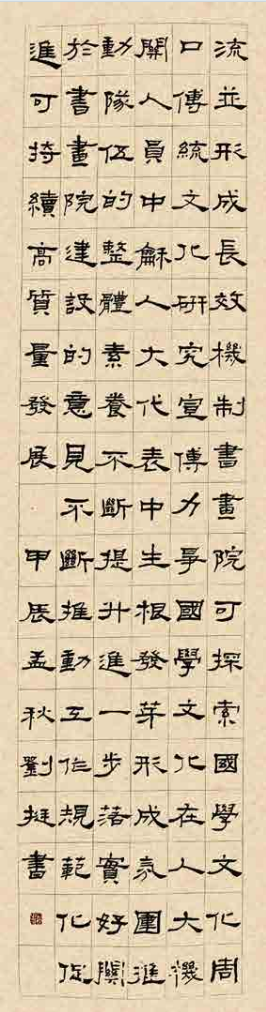 流並形成長效機制書畫院可探索國學文化周
口傳統文化研究宣傳力爭國學文化在人大機
關人員中龢人大代表中生根發芽形成氛圍進
動隊伍的整體素養不斷提升進一步落實好關
於書畫院建設的意見不斷推動工作規範化促
進可持續高質量發展 甲辰孟秋劉挺書